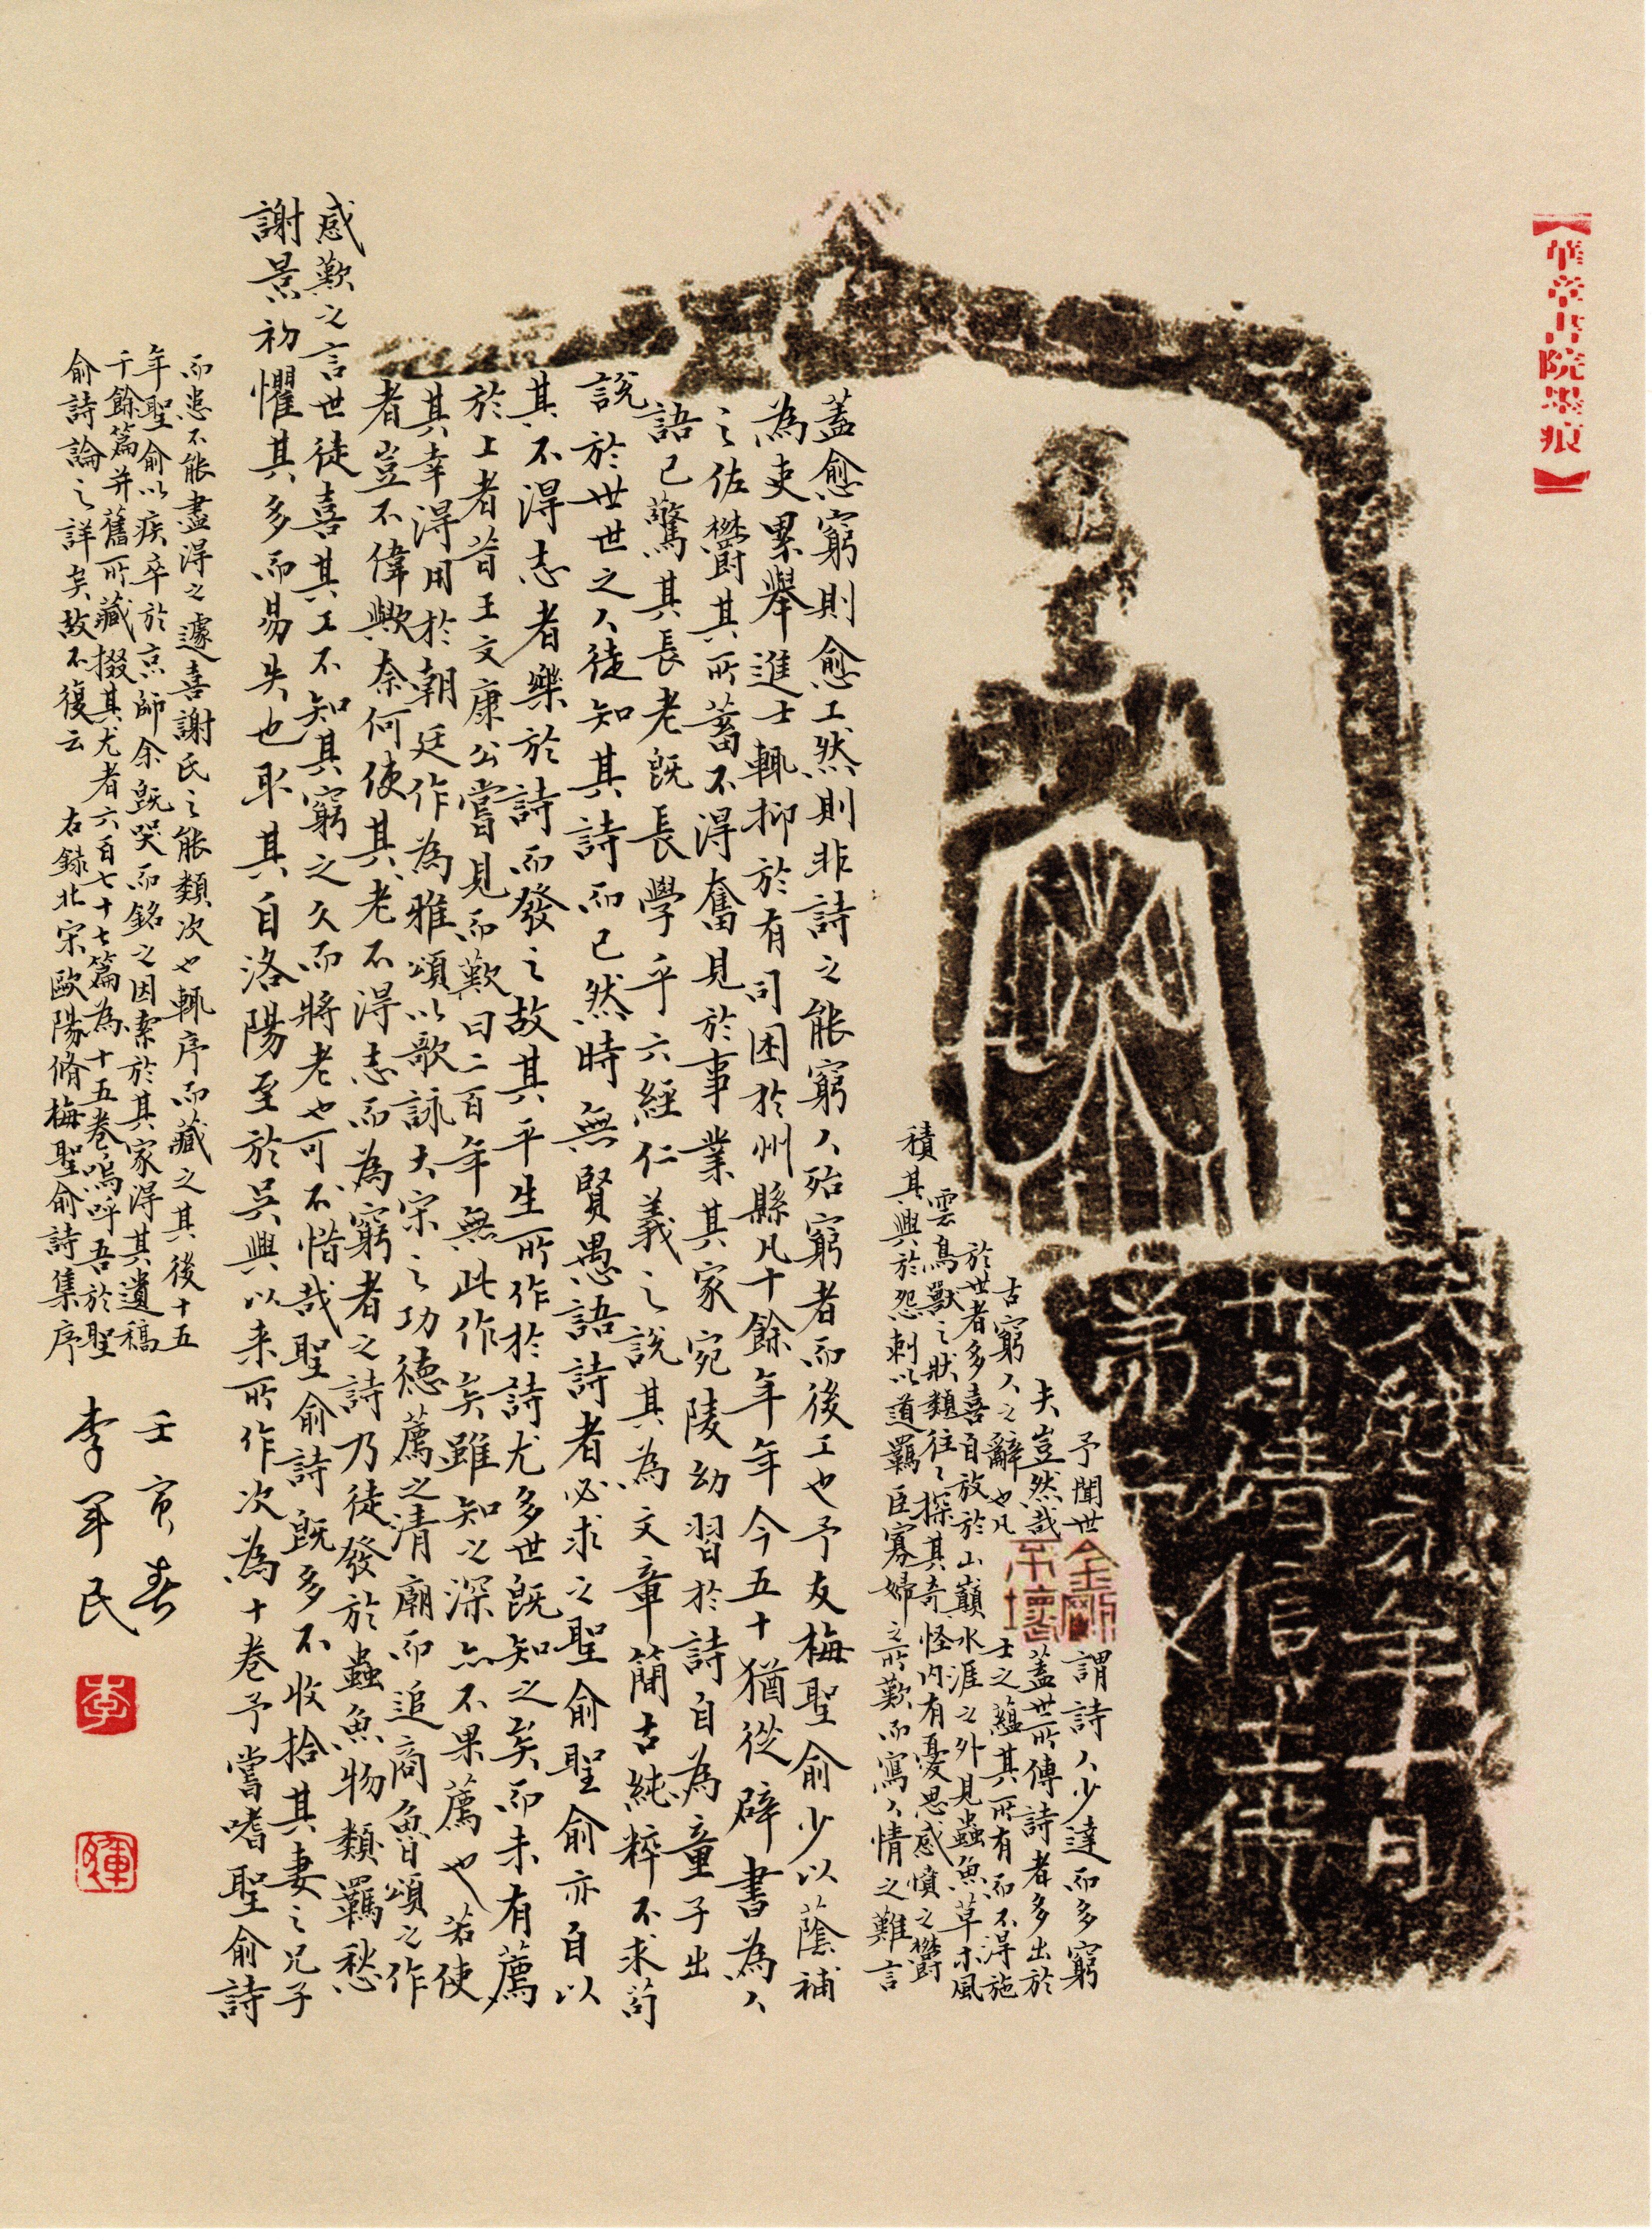 【華章書院墨痕】
年十月
日清信士佛
弟
予聞世謂詩人少達而多窮
夫豈然哉蓋世所傳詩者多出於
古窮人之辭也凡士之蘊其所有而不得施
於世者多喜自放於山巔水涯之外見蟲魚草木風
雲鳥獸之狀類往々探其奇怪內有憂思感憤之鬱
積其興於怨刺以道羈臣寡婦之所歎而寫人情之難言
金剛
不壞
蓋愈窮則愈工然則非詩之能窮人殆窮者而後工也予友梅聖俞少以蔭補
為吏累舉進士輒抑於有司困於州縣凡十餘年年今五十猶從辟書為人
之佐鬱其所蓄不得奮見於事業其家宛陵幼習於詩自為童子出
語已驚其長老既長學乎六經仁義之說其為文章簡古純粹不求苟
說於世世之人徒知其詩而已然時無賢愚語詩者必求之聖俞聖俞亦自以
其不得志者樂於詩而發之故其平生所作於詩尤多世既知之矣而未有薦
於上者昔王文康公嘗見而歎曰二百年無此作矣雖知之深亦不果薦也若使
其幸得用於朝廷作為雅頌以歌詠大宋之功德薦之清廟而追商魯頌之作
者豈不偉歟奈何使其老不得志而為窮者之詩乃徒發於蟲魚物類羈愁
感歎之言世徒喜其工不知其窮之久而將老也可不惜哉聖俞詩既多不收拾其妻之兄子
謝景初懼其多而易失也取其自洛陽至於吳興以來所作次為十卷予嘗嗜聖俞詩
而患不能盡得之遽喜謝氏之能類次也輒序而藏之其後十五
年聖俞以疾卒於京師余既哭而銘之因索於其家得其遺稿
千餘篇并舊所藏掇其尤者六百七十七篇為十五卷嗚呼吾於聖
俞詩論之詳矣故不復云 右錄北宋歐陽脩梅聖俞詩集序
壬寅春
李军民
李